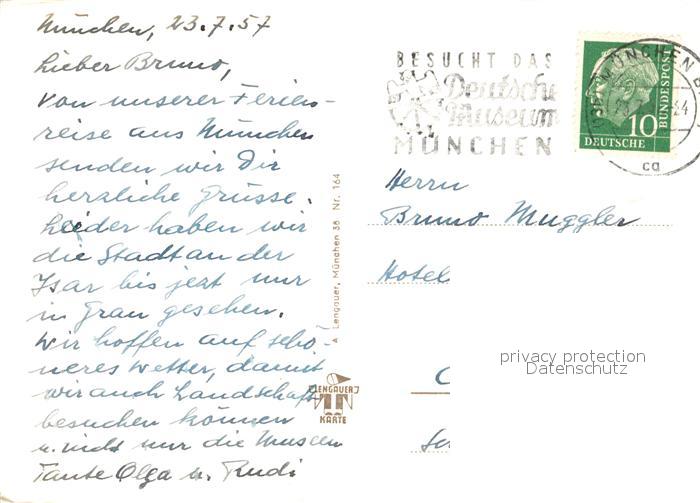 München, 23.7.57
Lieber Bruno,
von unserer Ferien-
reise aus München
senden wir Dir
herzliche Grüsse.
Leider haben wir
die Stadt an der
Isar bis jetzt nur
in Grau gesehen.
Wir hoffen auf schö-
neres Wetter, damit
wir auch Landschaft
besuchen können
u. nicht nur die Museen
Tante Olga u. Rudi
▲ Lengauer, München 38 Nr. 164
LENGAUER
KARTE
BESUCHT DAS
Deutsche
Museum
MÜNCHEN
MÜNCHEN
10
DEUTSCHE
BUNDESPOST
ca
Herrn
Bruno Muggler
Hotel
privacy protection
Datenschutz